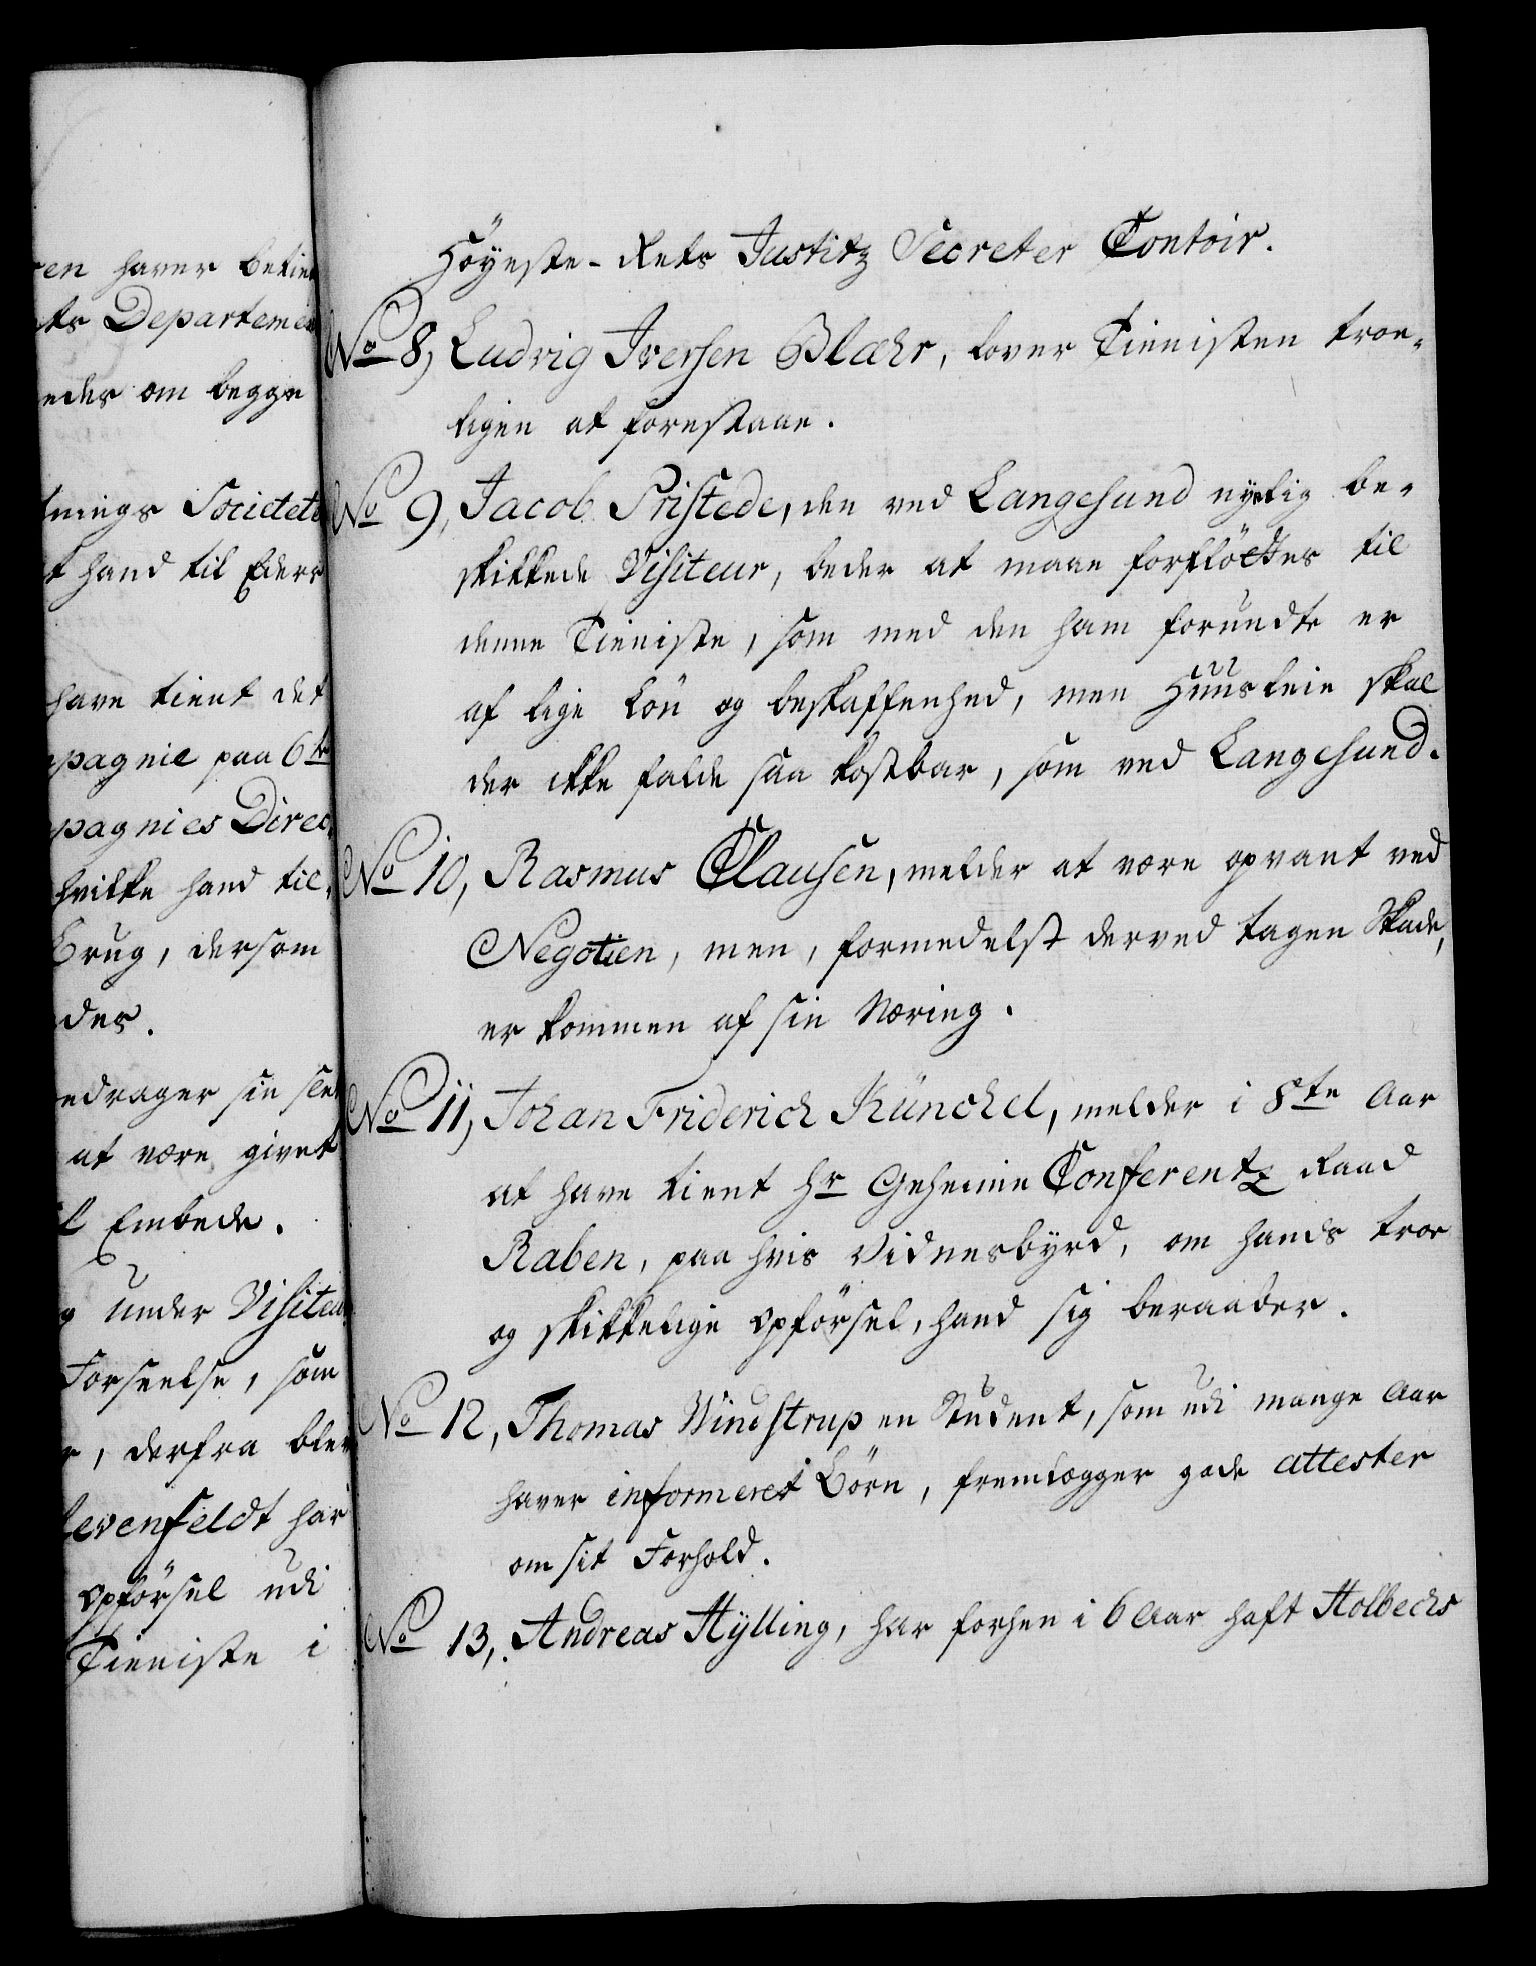 en haver betien
ts Departemen
edes om begge
tnings Societets
t hand til Eders
have tient det
pagnie paa 6te
pagnies Direc-
hvilke hand til-
Brug, dersom
des.
edrager sin
at være givet
l Embede.
under Visiteu
Forseelse, som
r, derfra ble
levenfeldt har
Opførsel udi
Tieniste i
Höyeste-Rets Justitz Secreter Contoir.
No 8, Ludvig Iversen Blæhr, lover Tienisten troe-
ligen at forestaae.
No 9, Jacob Pristede, den ved Langesund nylig be-
skikkede Visiteur, beder at maae forfløttes til
denne Tieniste, som med den ham forundte er
af lige Løn og beskaffenhed, men Huusleie skal
der ikke falde saa kostbar, som ved Langesund.
No 10, Rasmus Clausen, melder at være opvant ved
Negotien, men, formedelst derved tagen Skade,
er kommen af sin Næring.
No 11, Johan Friderich Künchel, melder i 8te Aar
at have tient Hr Geheime Conferentz Raad
Raben, paa hvis Vidnesbyrd, om hands troe
og skikkelige Opförsel, hand sig beraaber.
No 12, Thomas Windstrup en Student, som udi mange Aar
haver informeret Börn, fremlægger gode attester
om sit Forhold.
No 13, Andreas Hylling, har forhen i 6 Aar haft Holbechs